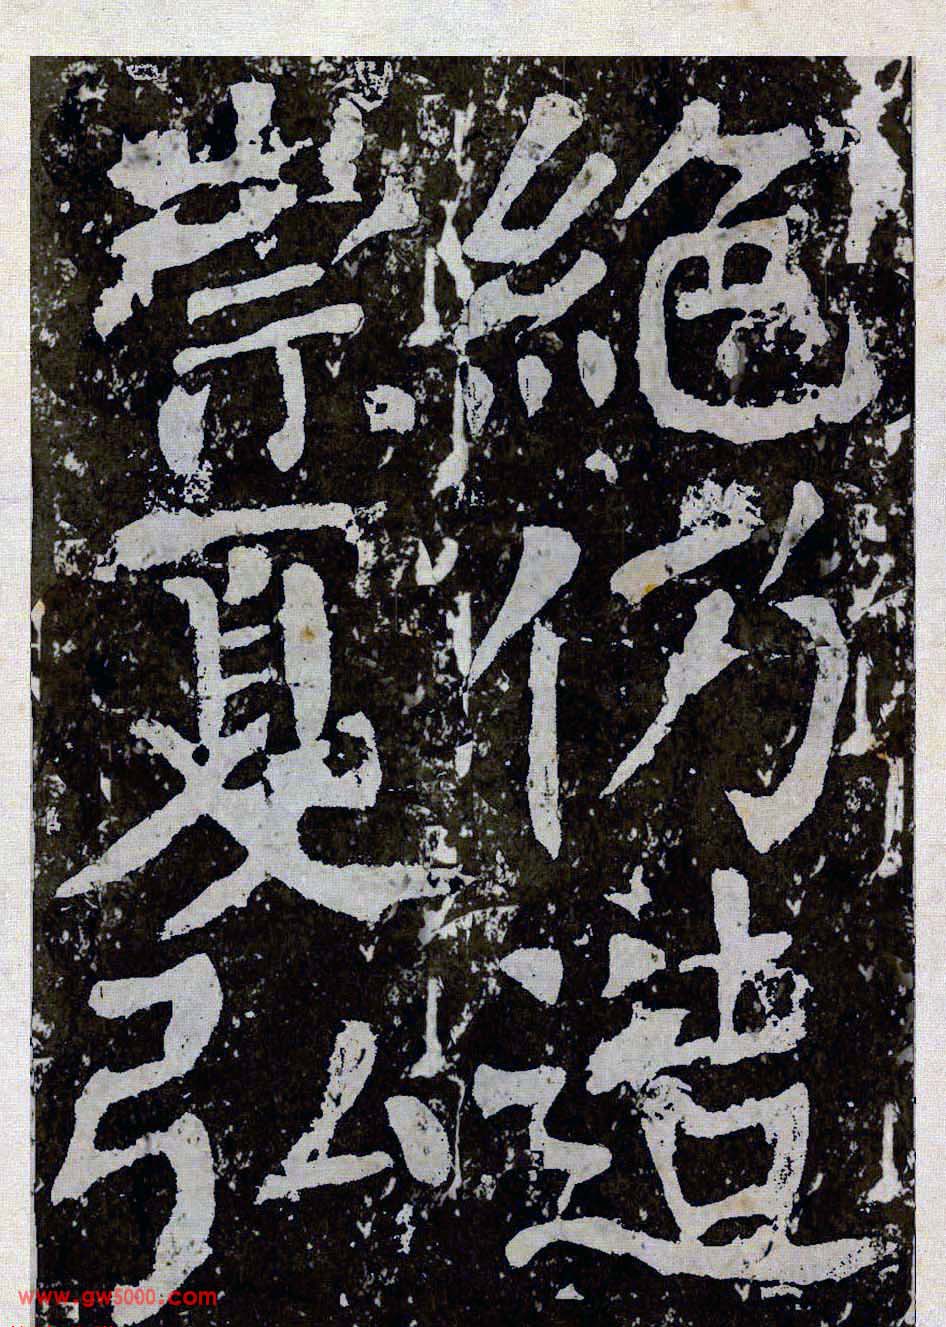 絶造
崇夏弘
www.gw5000.com